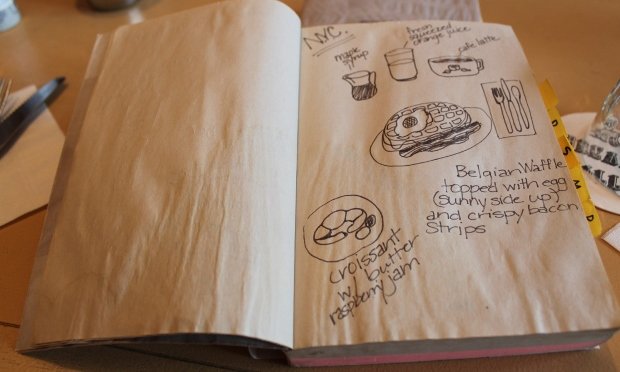 N.Y.C.
maple
syrup
fresh
squeezed
orange juice
cafe latte
Belgian Waffle
topped with egg
(sunny side up)
and crispy bacon
Strips
croissant
w/ butter
raspberry jam
D
S
M
D